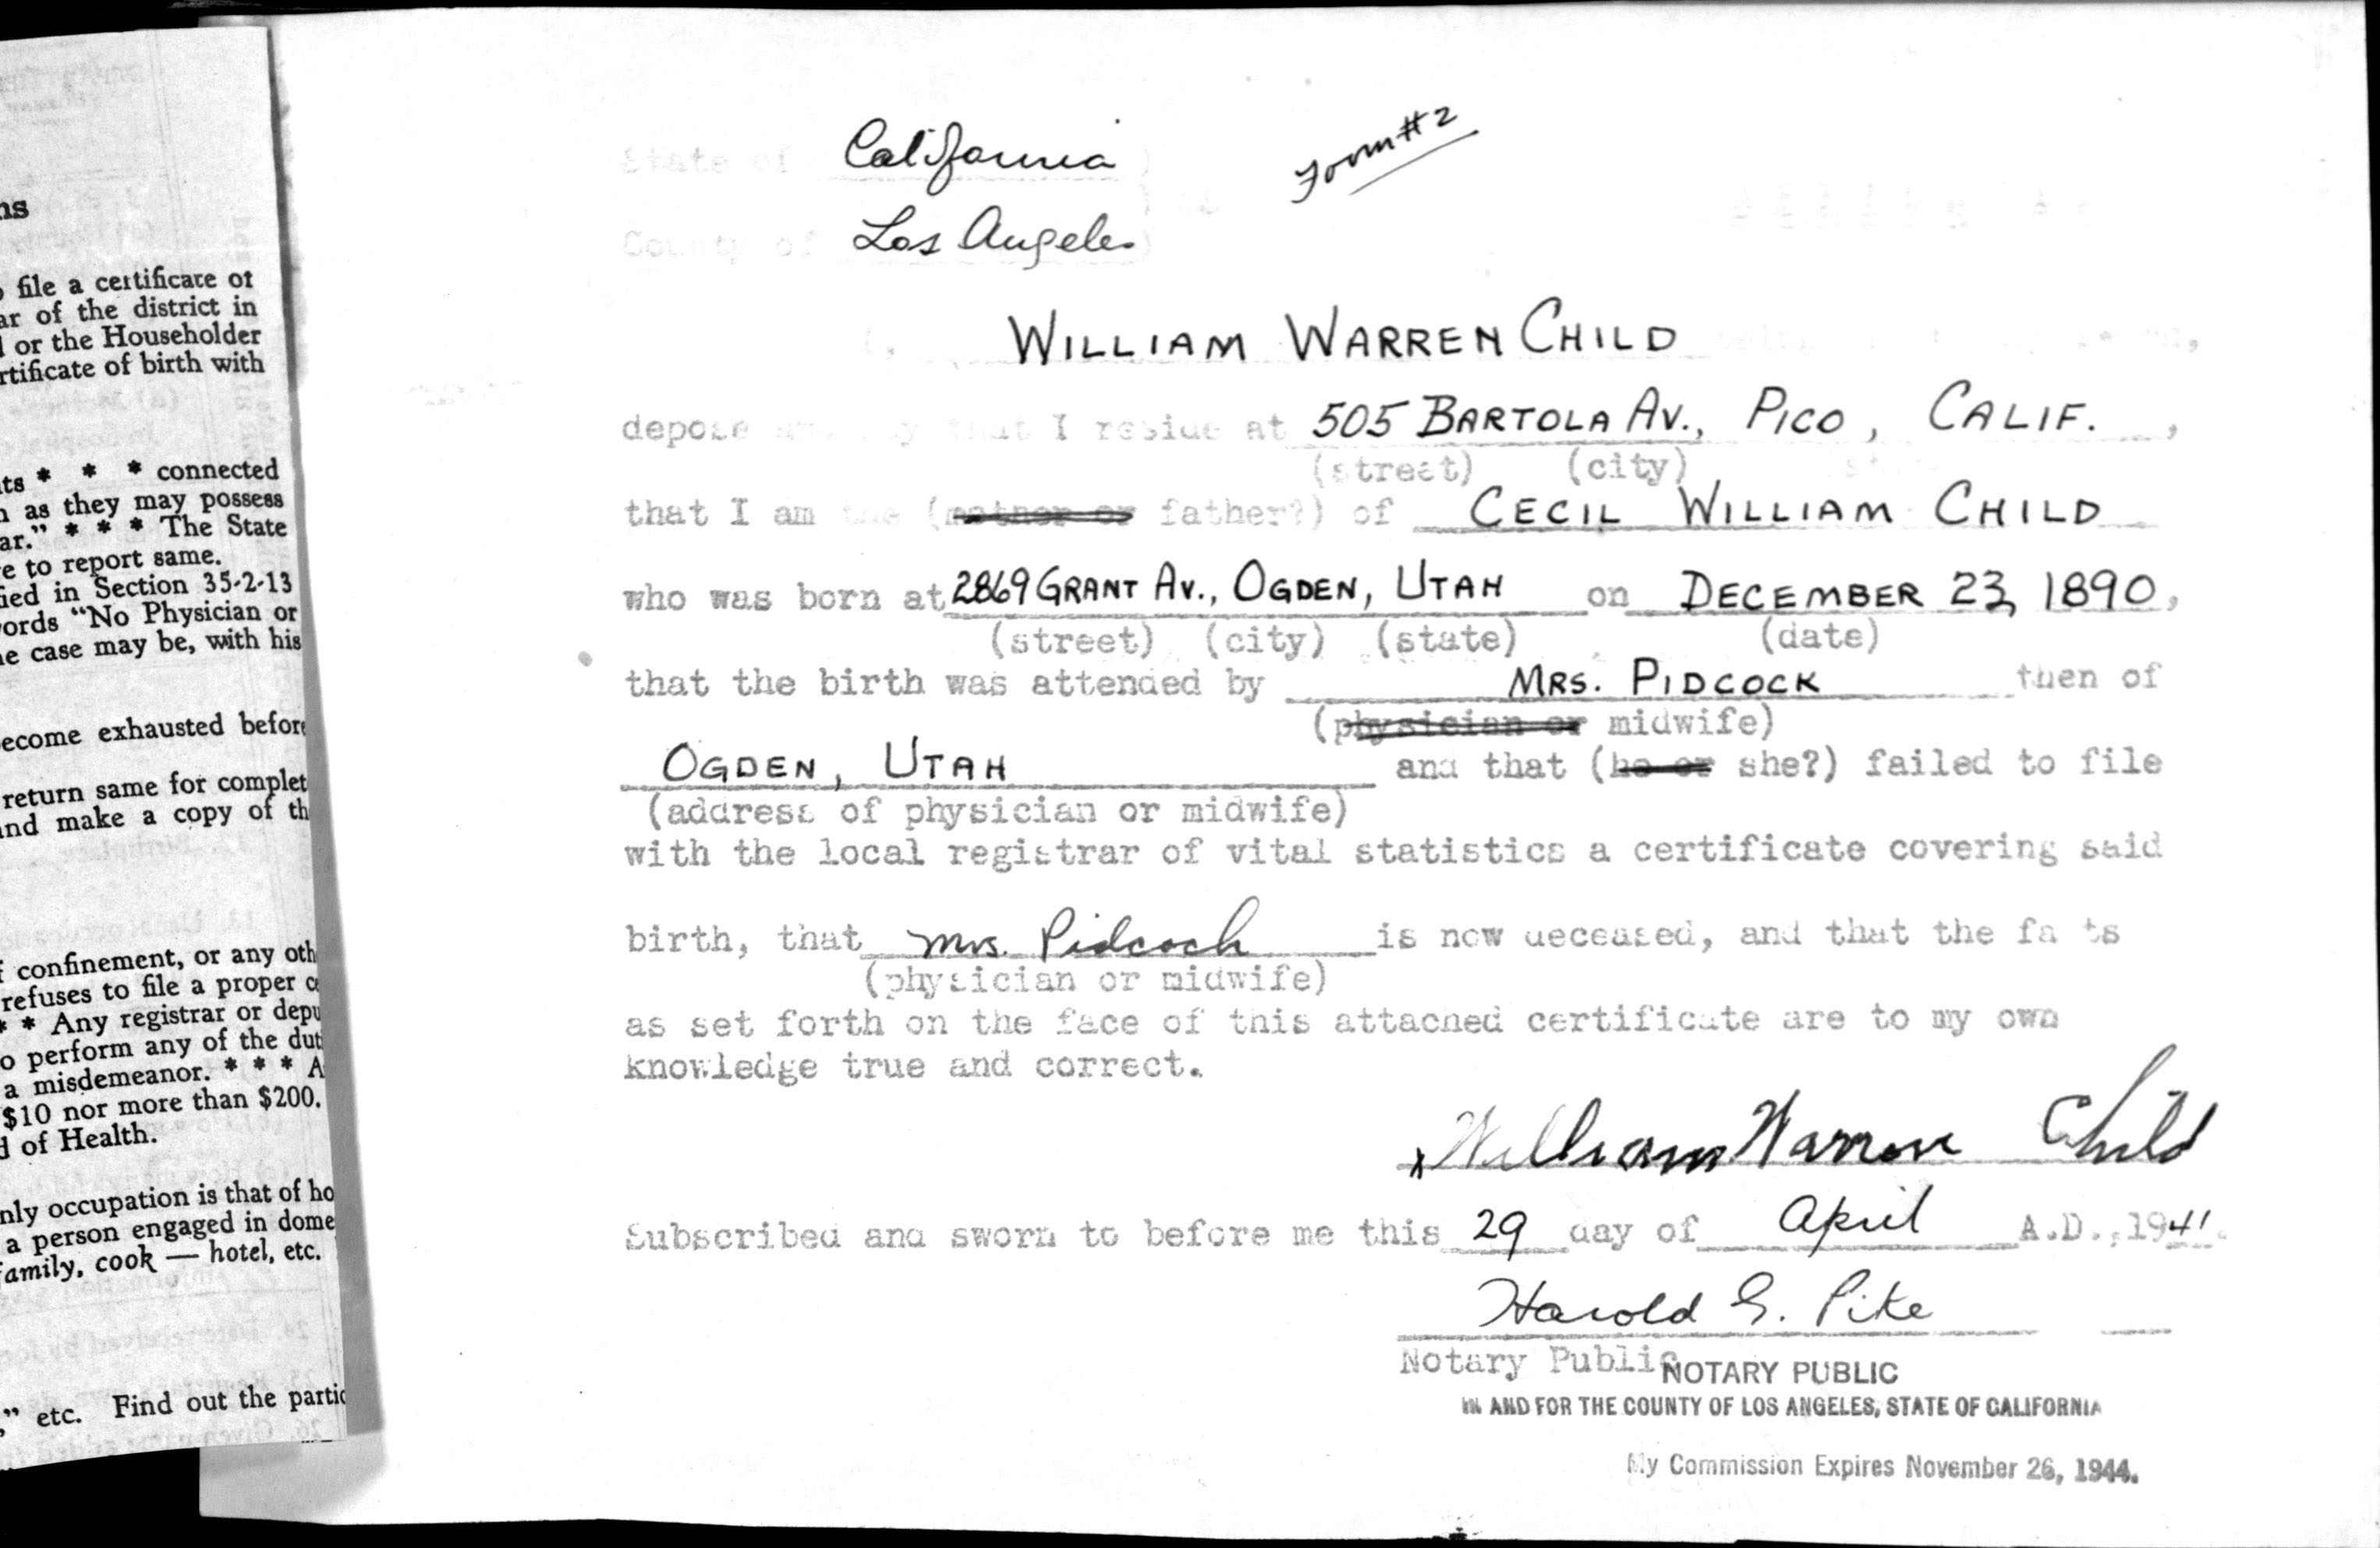 ns
file a certificate of
ar of the district in
or the Householder
rtificate of birth with
ts * * * connected
as they may possess
ar." * * * The State
e to report same.
ied in Section 35-2-13
ords "No Physician or
e case may be, with his
ecome exhausted before
return same for complet
nd make a copy of th
confinement, or any oth
refuses to file a proper c
* * Any registrar or depu
o perform any of the dut
a misdemeanor. * * * A
$10 nor more than $200.
d of Health.
nly occupation is that of ho
a person engaged in dome
family, cook — hotel, etc.
," etc. Find out the partic
Form #2
State of California )
County of Los Angeles )
I, WILLIAM WARREN CHILD
depose that I reside at 505 BARTOLA AV., PICO, CALIF.,
(street) (city)
that I am the (mother or father?) of CECIL WILLIAM CHILD
who was born at 2869 GRANT AV., OGDEN, UTAH on DECEMBER 23, 1890,
(street) (city) (state) (date)
that the birth was attended by MRS. PIDCOCK then of
(physician or midwife)
OGDEN, UTAH and that (he or she?) failed to file
(address of physician or midwife)
with the local registrar of vital statistics a certificate covering said
birth, that Mrs. Pidcock is now deceased, and that the fa ts
(physician or midwife)
as set forth on the face of this attached certificate are to my own
knowledge true and correct.
x William Warren Child
Subscribed and sworn to before me this 29 day of April A.D., 1941.
Harold G. Pike
Notary Public NOTARY PUBLIC
IN AND FOR THE COUNTY OF LOS ANGELES, STATE OF CALIFORNIA
My Commission Expires November 26, 1944.